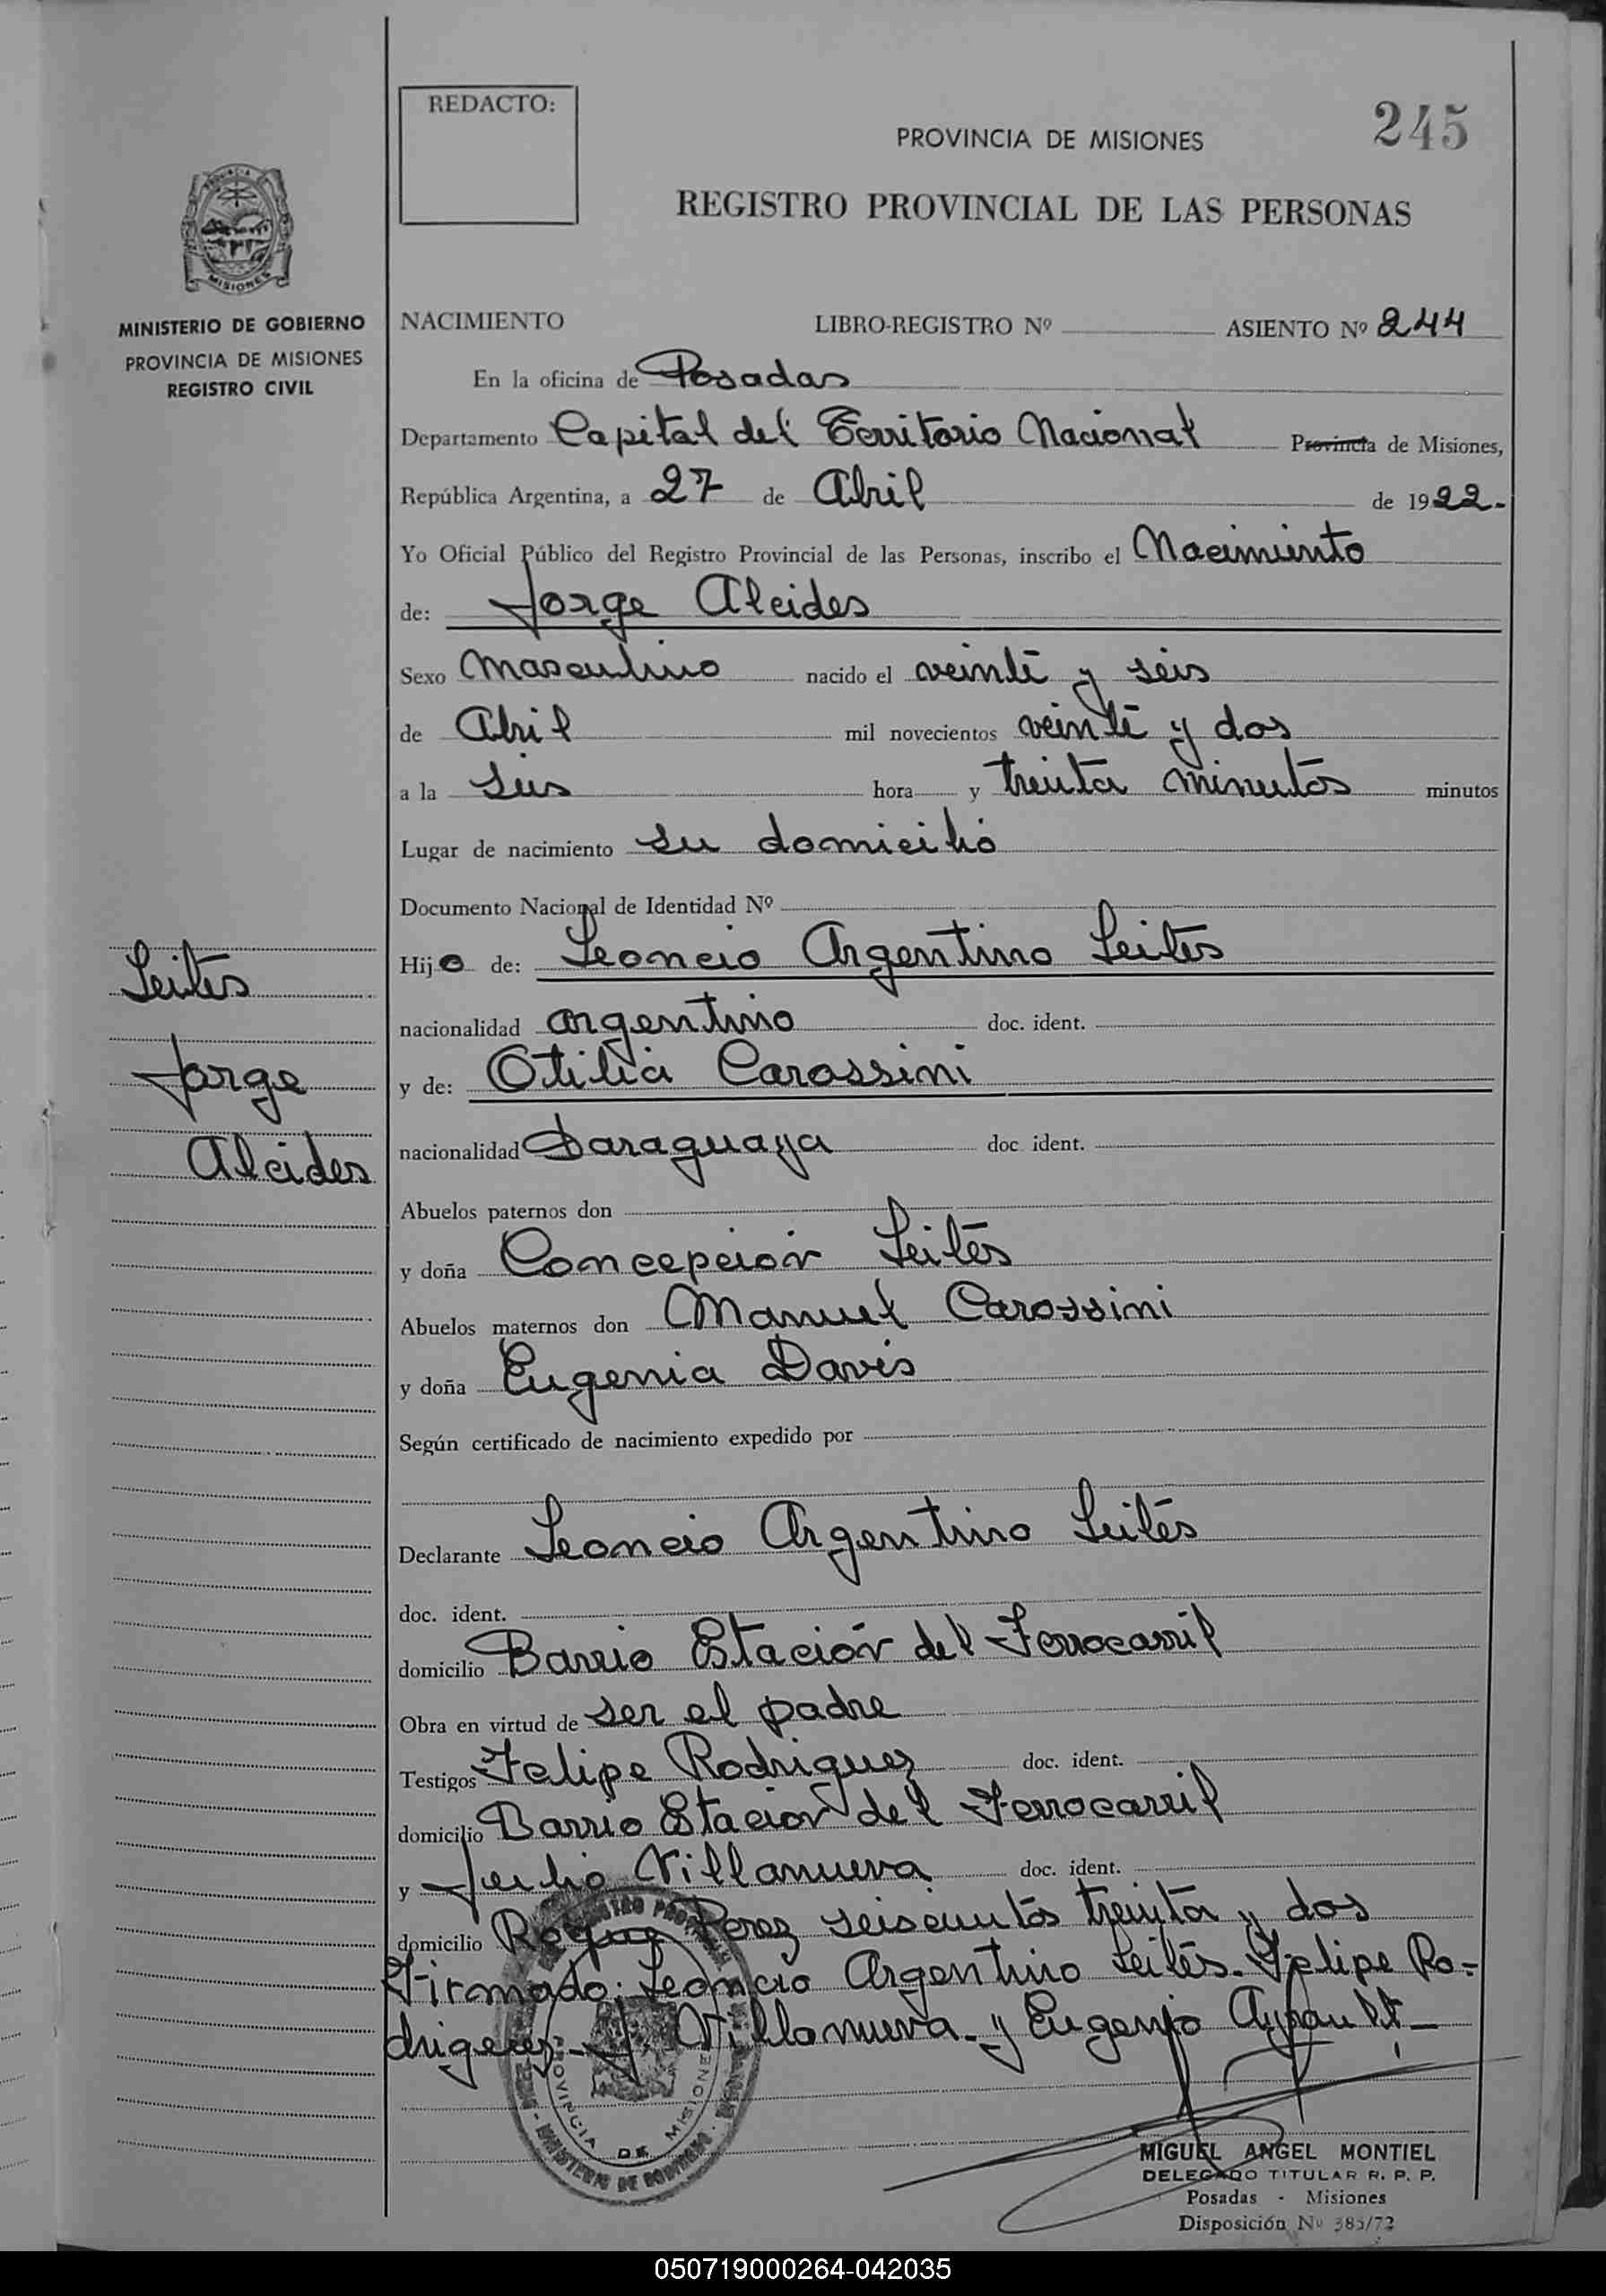 REDACTO:
245
PROVINCIA DE MISIONES
REGISTRO PROVINCIAL DE LAS PERSONAS
MISIONES
MINISTERIO DE GOBIERNO
PROVINCIA DE MISIONES
REGISTRO CIVIL
NACIMIENTO LIBRO-REGISTRO Nº ASIENTO Nº 244
En la oficina de Posadas
Departamento Capital del Territorio Nacional Provincia de Misiones,
República Argentina, a 27 de Abril de 1922.
Yo Oficial Público del Registro Provincial de las Personas, inscribo el Nacimiento
de: Jorge Alcides
Sexo Masculino nacido el veinte y seis
de Abril mil novecientos veinte y dos
a la seis hora y treinta minutos minutos
Lugar de nacimiento su domicilio
Documento Nacional de Identidad Nº
Hijo de: Leoncio Argentino Leites
nacionalidad argentino doc. ident.
y de: Otilia Carossini
nacionalidad Paraguaya doc ident.
Abuelos paternos don
y doña Concepción Leites
Abuelos maternos don Manuel Carossini
y doña Eugenia Davis
Según certificado de nacimiento expedido por
Declarante Leoncio Argentino Leites
doc. ident.
domicilio Barrio Estación del Ferrocarril
Obra en virtud de ser el padre
Testigos Felipe Rodriguez doc. ident.
domicilio Barrio Estacion del Ferrocarril
y Julio Villanueva doc. ident.
domicilio Roque Perez seiscientos treinta y dos
Firmado: Leoncio Argentino Leites. Felipe Ro-
driguez. J Villanueva. y Eugenio
Leites
Jorge
Alcides
PROVINCIA DE MISIONES
MINISTERIO DE GOBIERNO
MIGUEL ANGEL MONTIEL
DELEGADO TITULAR R. P. P.
Posadas - Misiones
Disposición Nº 385/72
050719000264-042035